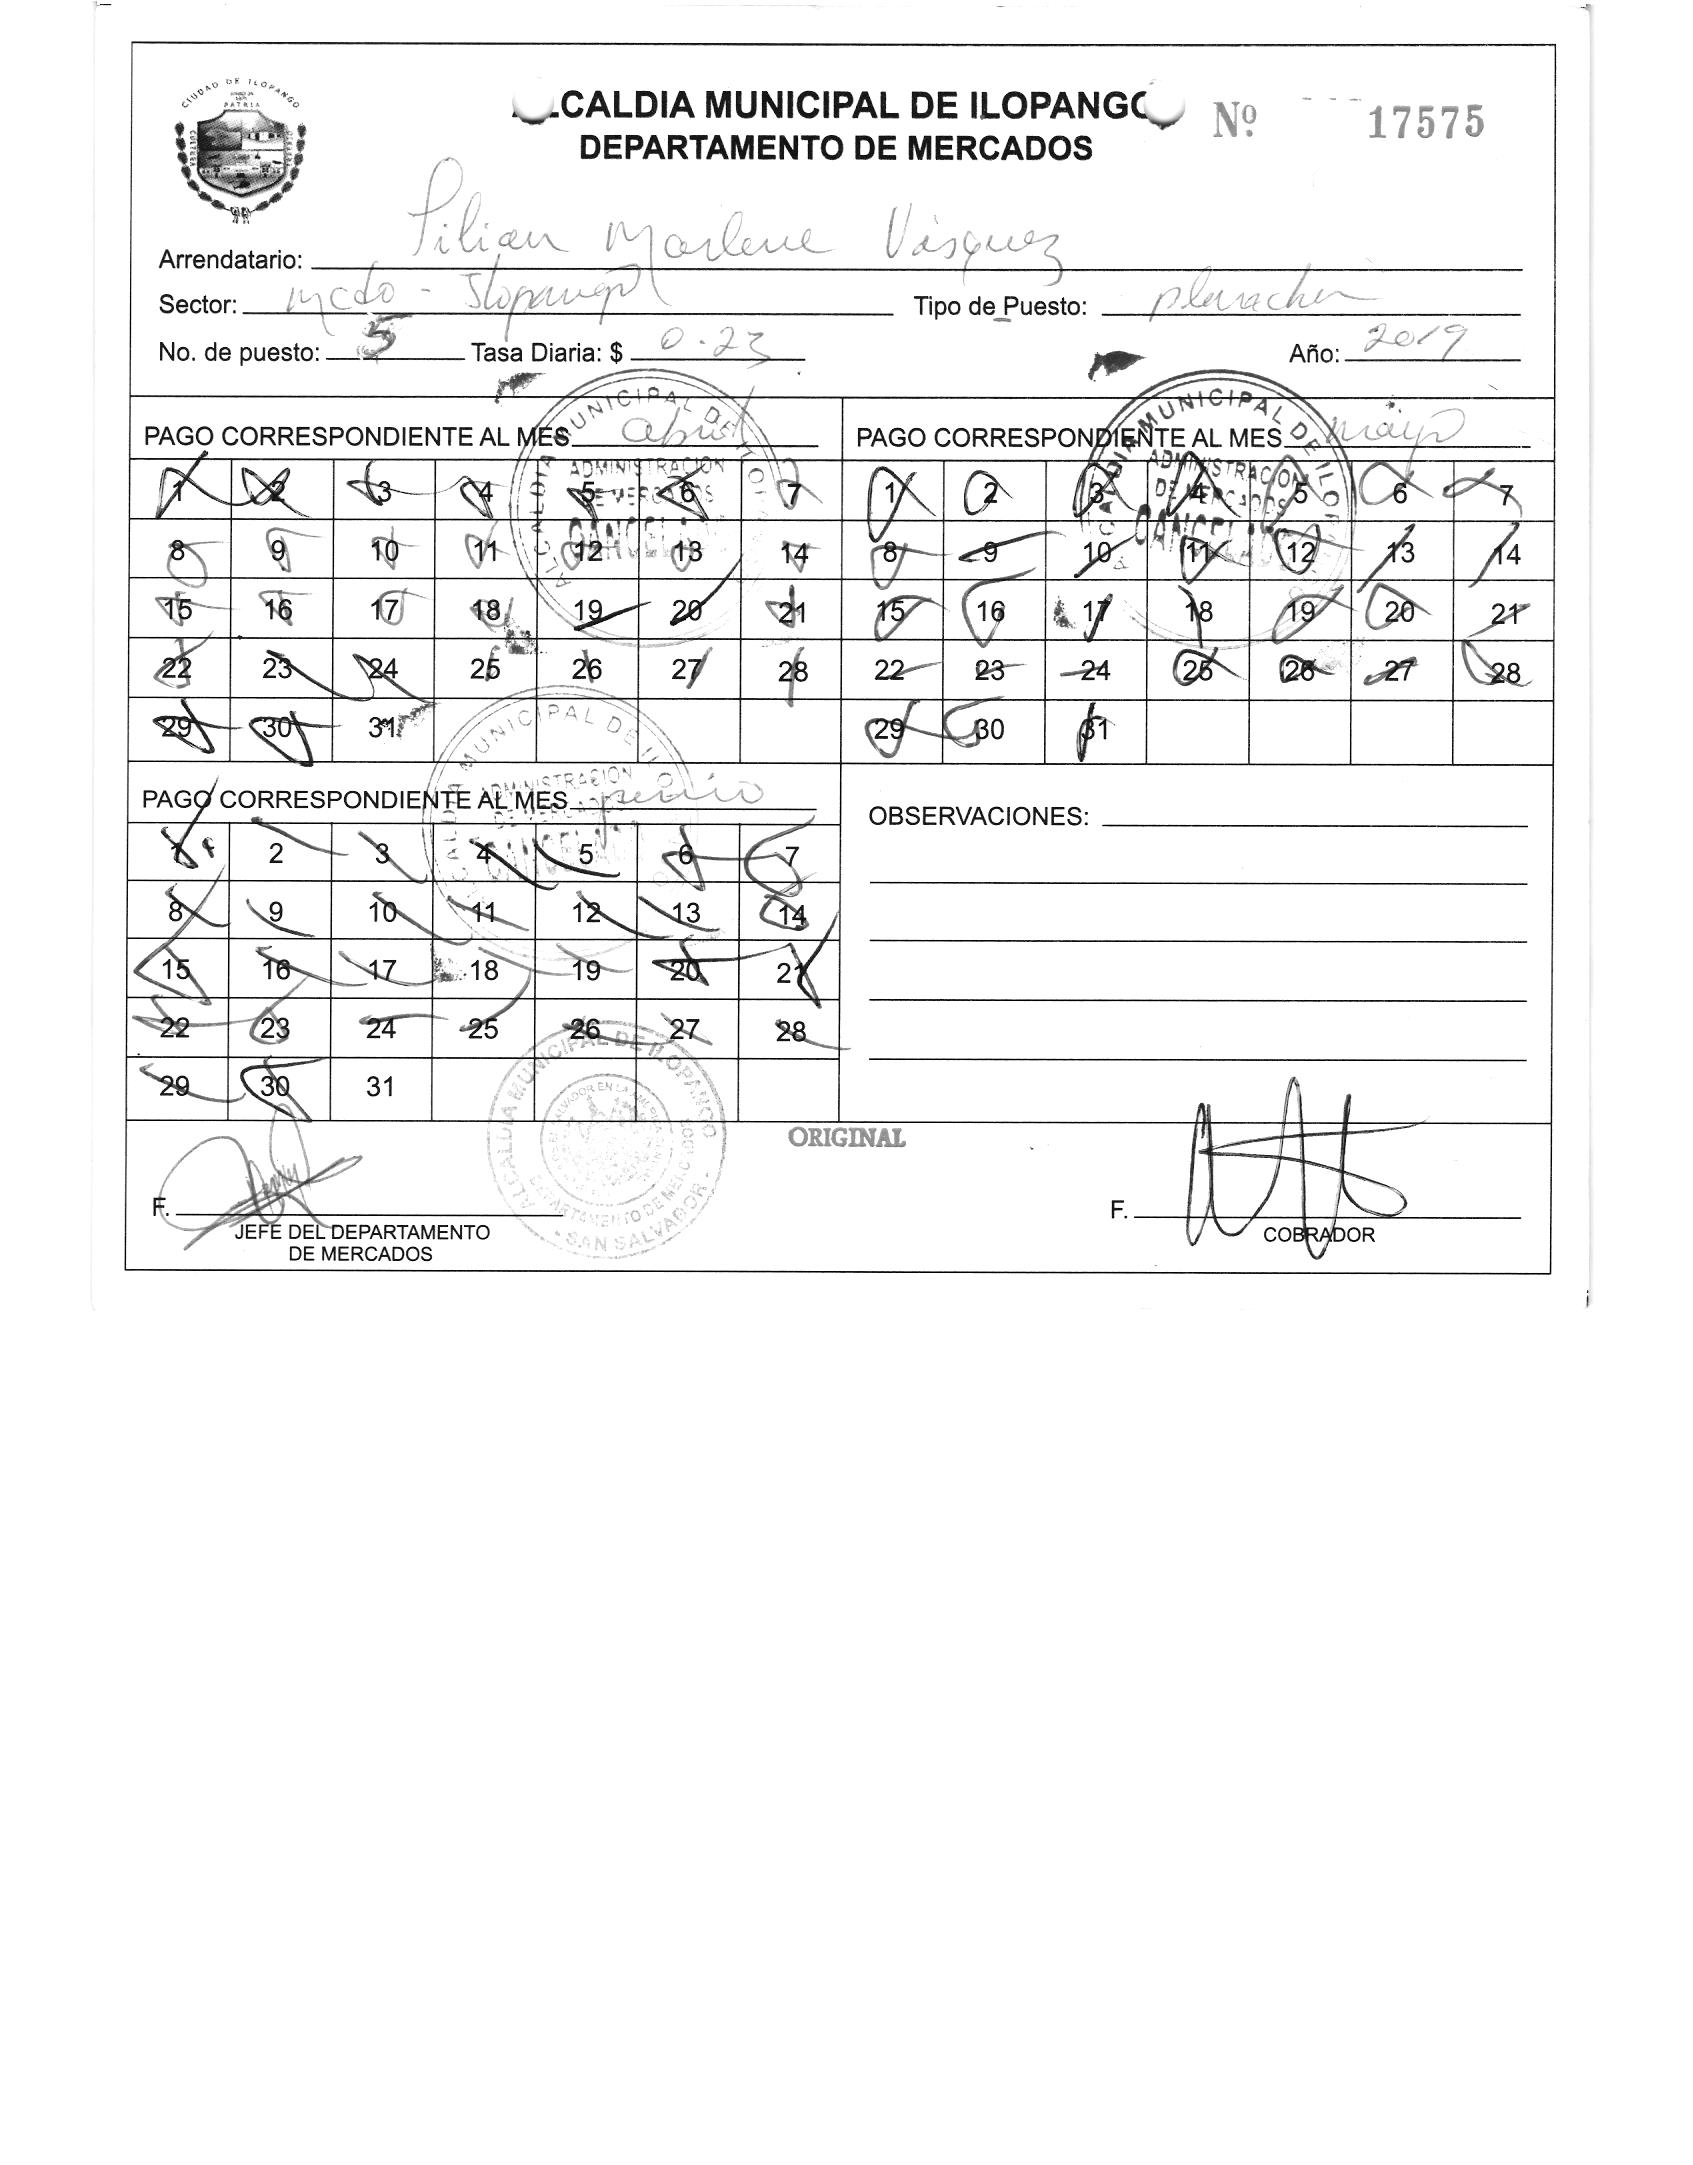 CIUDAD DE ILOPANGO
PATRIA
CALDIA MUNICIPAL DE ILOPANGO
Nº 17575
DEPARTAMENTO DE MERCADOS
Arrendatario: Lilian Marlene Vásquez
Sector: mcdo - Ilopango Tipo de Puesto:
No. de puesto: 5 Tasa Diaria: $ 0.23 Año: 2019
PAGO CORRESPONDIENTE AL MES abril
1 2 3 4 5 6 7
8 9 10 11 12 13 14
15 16 17 18 19 20 21
22 23 24 25 26 27 28
29 30 31
ALCALDIA MUNICIPAL DE ILOPANGO
ADMINISTRACION
DE MERCADOS
CANCELADO
PAGO CORRESPONDIENTE AL MES mayo
1 2 3 4 5 6 7
8 9 10 11 12 13 14
15 16 17 18 19 20 21
22 23 24 25 26 27 28
29 30 31
ALCALDIA MUNICIPAL DE ILOPANGO
ADMINISTRACION
DE MERCADOS
CANCELADO
PAGO CORRESPONDIENTE AL MES junio
1 2 3 4 5 6 7
8 9 10 11 12 13 14
15 16 17 18 19 20 21
22 23 24 25 26 27 28
29 30 31
ALCALDIA MUNICIPAL DE ILOPANGO
ADMINISTRACION
DE MERCADOS
CANCELADO
OBSERVACIONES:
ORIGINAL
ALCALDIA MUNICIPAL DE ILOPANGO
DEPARTAMENTO DE MERCADOS
- SAN SALVADOR -
F.
JEFE DEL DEPARTAMENTO
DE MERCADOS
F.
COBRADOR